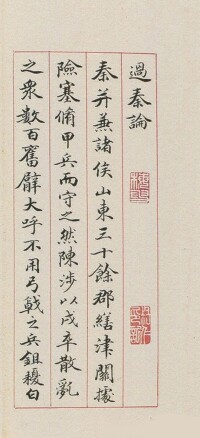 過秦論
秦并兼諸侯山東三十餘郡繕津關據
險塞俻甲兵而守之然陳涉以戍卒散亂
之衆數百奮臂大呼不用弓戟之兵鉏櫌白